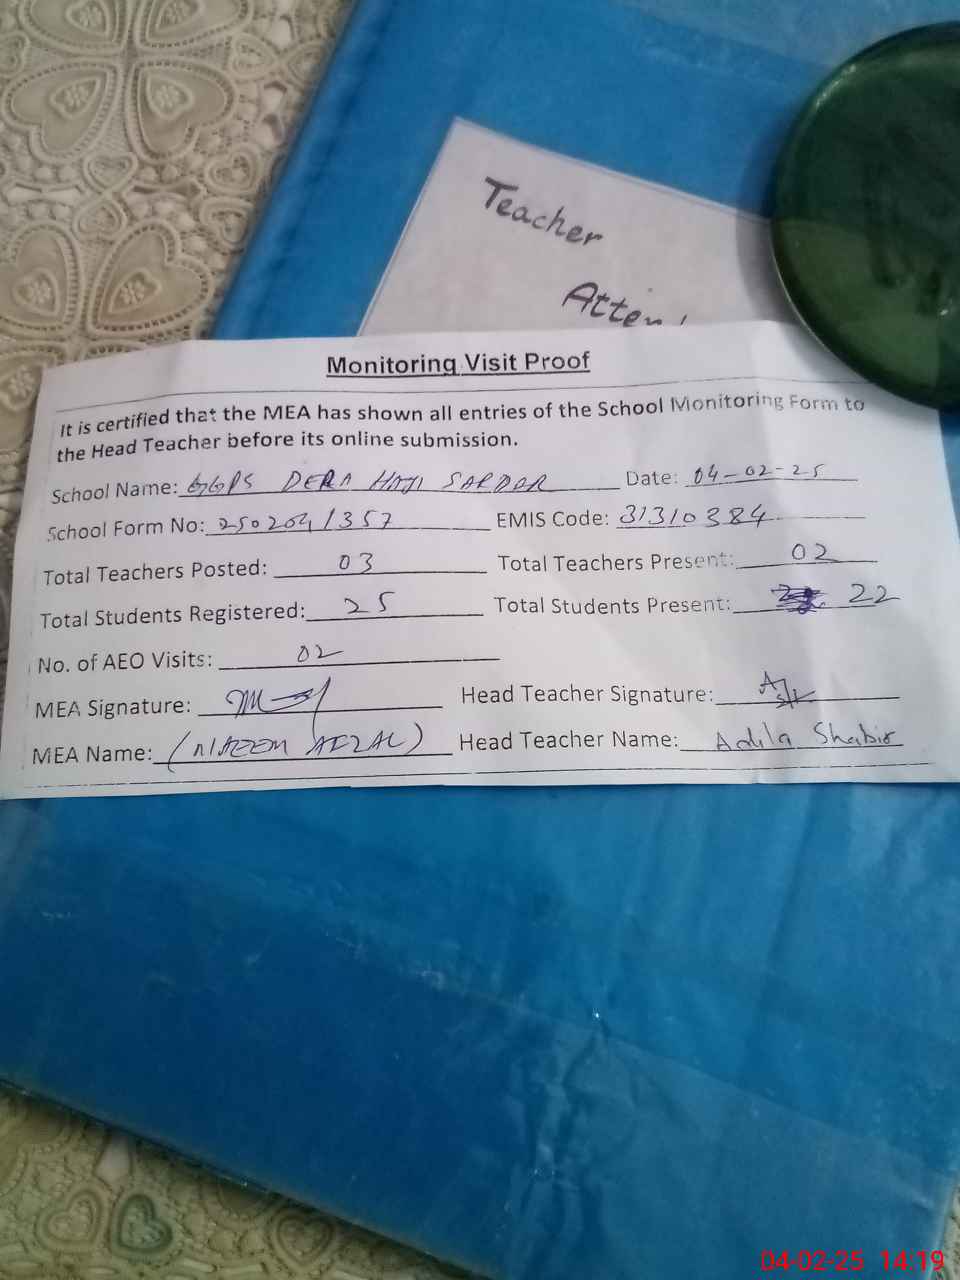 Teacher
Atten
Monitoring Visit Proof
It is certified that the MEA has shown all entries of the School Monitoring Form to
the Head Teacher before its online submission.
School Name: GGPS DERA HAJI SARDAR Date: 04-02-25
School Form No: 250204/357 EMIS Code: 31310384
Total Teachers Posted: 03 Total Teachers Present: 02
Total Students Registered: 25 Total Students Present: 22
No. of AEO Visits: 02
MEA Signature: Head Teacher Signature:
MEA Name: AFZAL) Head Teacher Name: Adila Shabir
04-02-25 14:19